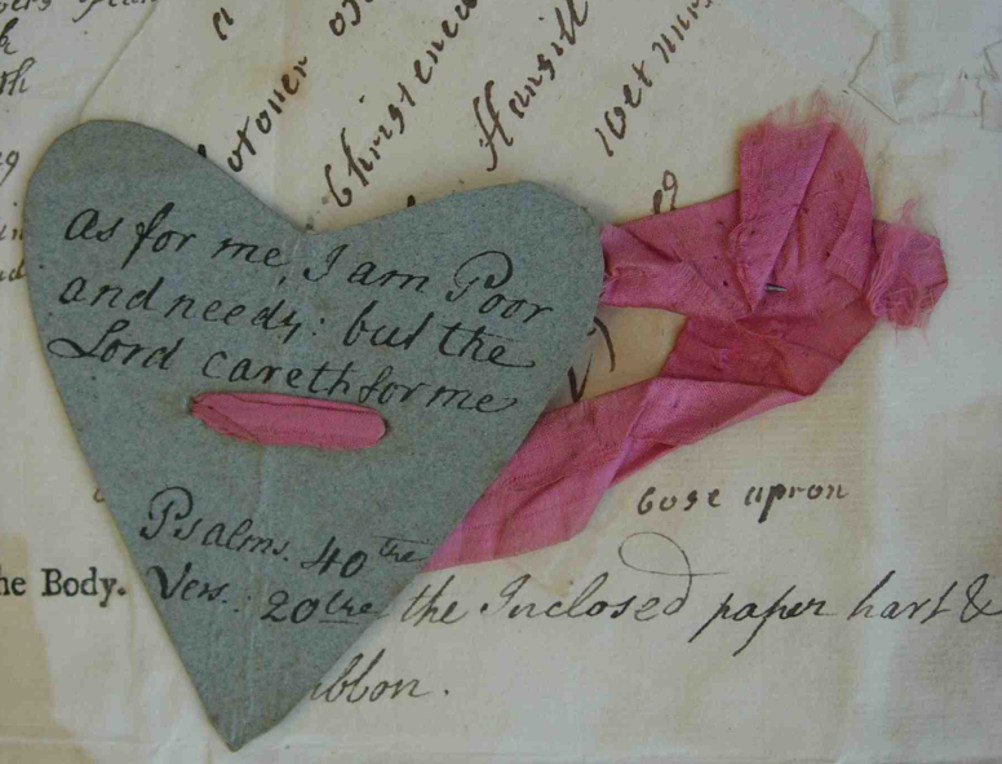 as for me, I am Poor
and needy: but the
Lord careth for me
Psalms. 40the
Vers. 20the
Christened
wet
apron
he Body.
the Inclosed paper hart &
ibbon.